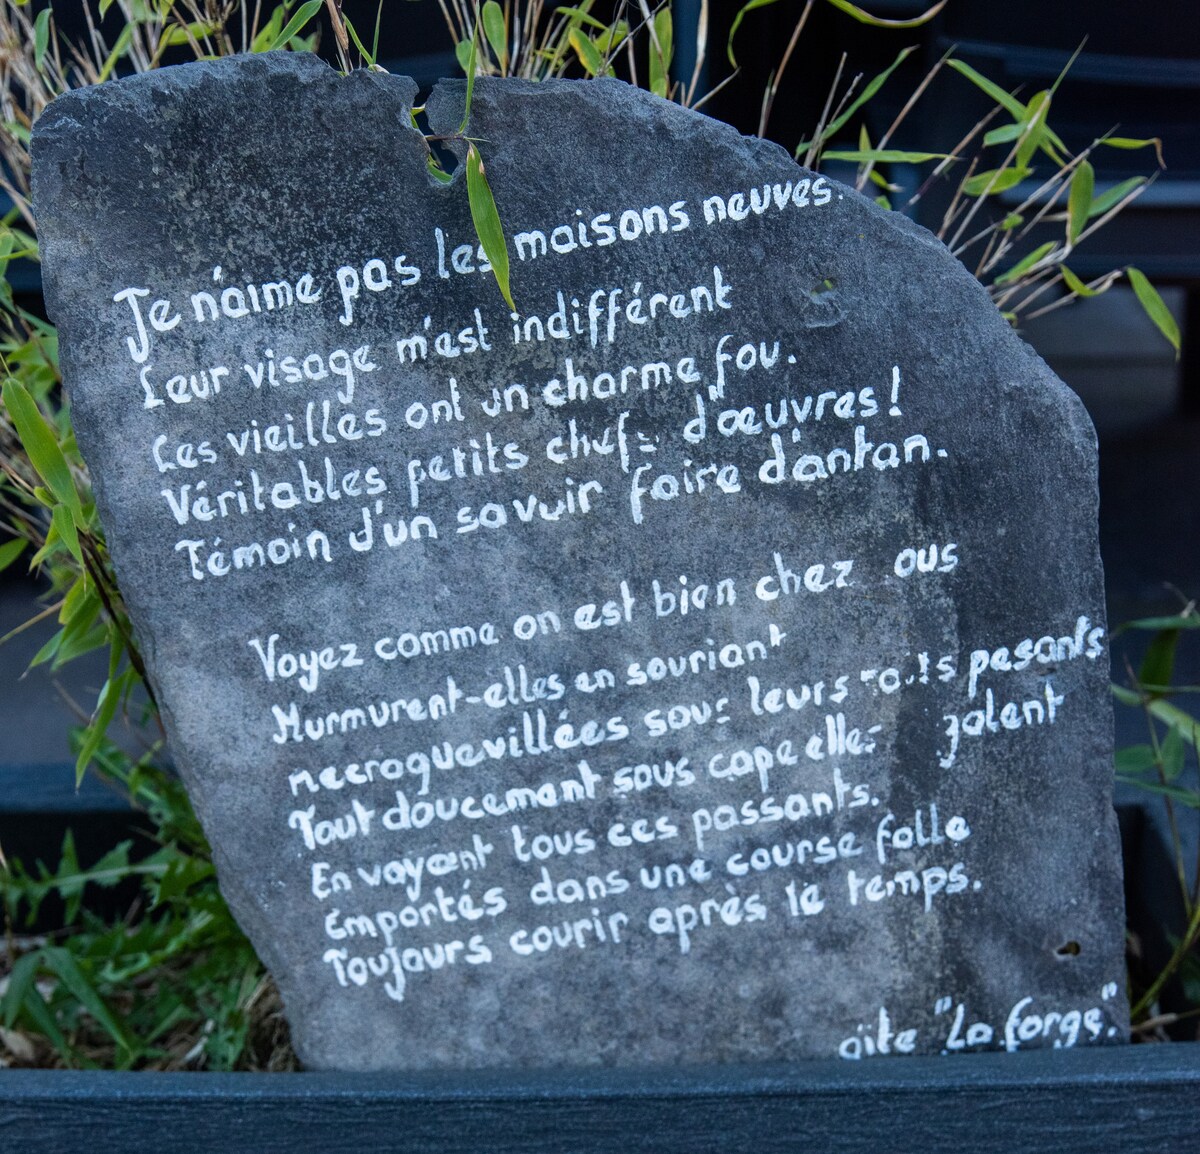 Je n'aime pas les maisons neuves.
Leur visage m'est indifférent
Les vieilles ont un charme fou.
Véritables petits chefs d'œuvres!
Témoin d'un savoir faire d'antan.
Voyez comme on est bien chez ous
Murmurent-elles en souriant
recroquevillées sous leurs pesants
Tout doucement sous cape elles
En voyant tous ces passants.
Emportés dans une course folle
Toujours courir après le temps.
gîte "La forge".